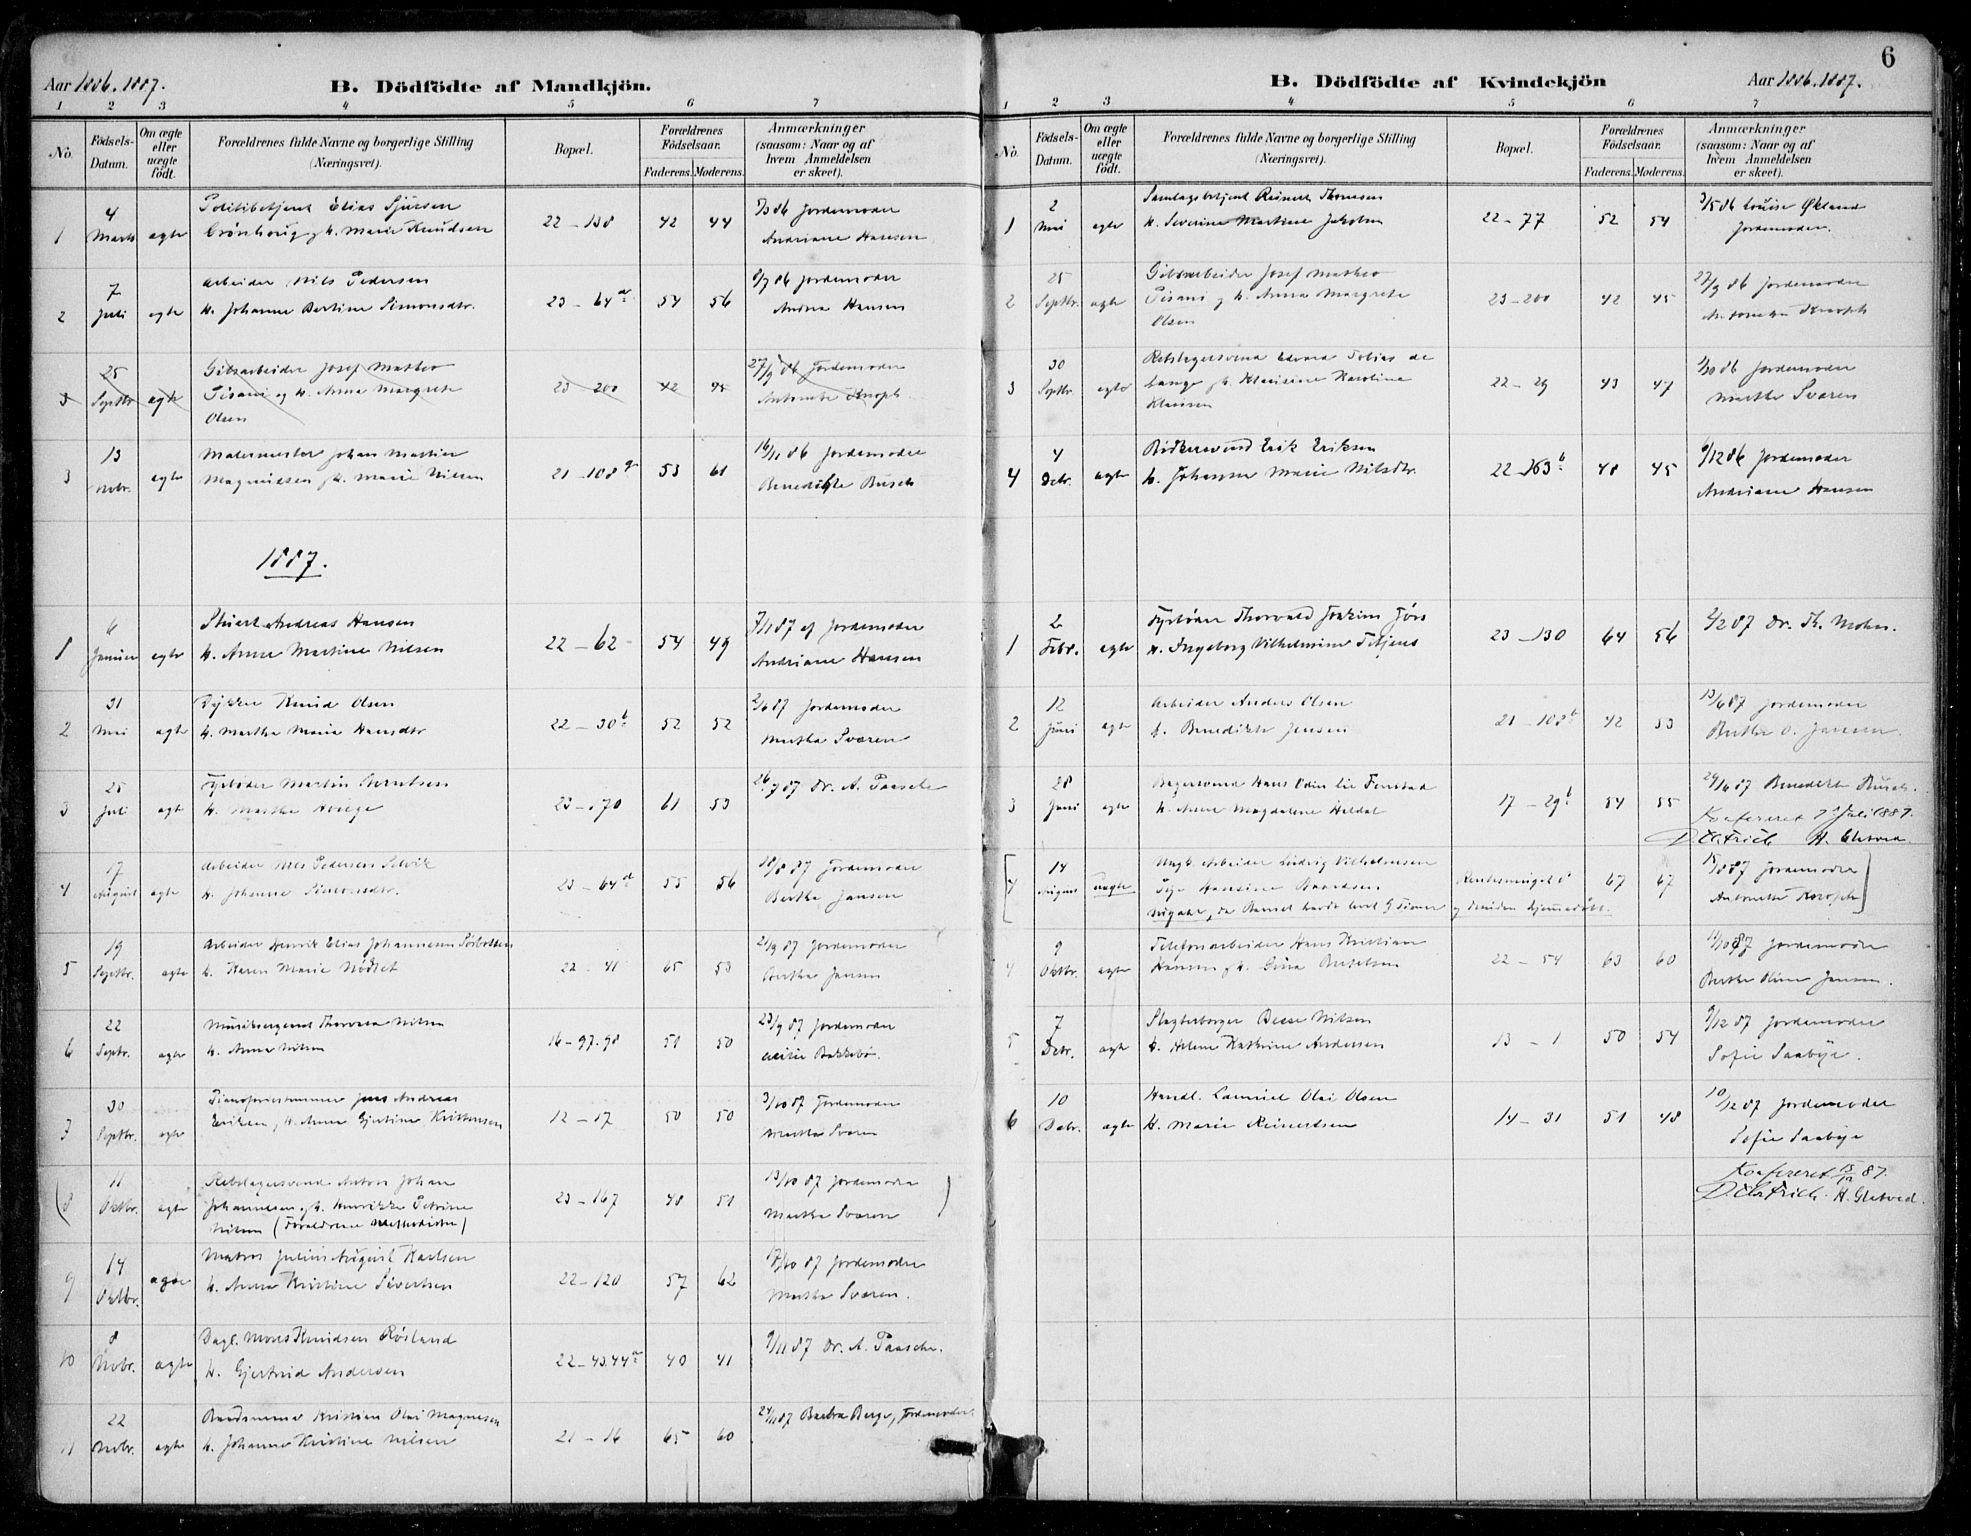 Aar 1886. 1887.
B. Dödfödte af Mandkjön.
1 2 3 4 5 6 7
No.
Födsels-Datum.
Om ægte eller uægte födt.
Forældrenes fulde Navne og borgerlige Stilling (Næringsvei).
Bopæl.
Forældrenes Födselsaar.
Faderens. Moderens.
Anmærkninger (saasom: Naar og af hvem Anmeldelsen er skeet).
1 4 Marts ægte Politibetjent Elias Sjursen
Grönhoug og H. Marie Knudsen 22-138 42 44 7/3 86 Jordemoder
Andriane Hansen
2 7 Juli ægte Arbeider Nils Pedersen
H. Johanne Bertine Simonsdtr. 23-64 54 56 8/7 86 Jordemoder
Andrea Hansen
3 25 Septbr ægte Gibsarbeider Josef Matheo
Pisani og H. Anna Margrete
Olsen 23 200 42 45 27/9 86 Jordemoder
Antonette Knoph.
3 13 Novbr. ægte Malermester Johan Martin
Magnussen og H. Marie Nilsen 21-108 53 61 16/11 86 Jordemoder
Benedikte Busch
1887.
1 6 Januar ægte Stuert Andreas Hansen
H. Anne Martine Nilsen 22-62 54 49 7/1 87 af Jordemoder
Andriane Hansen
2 31 Mai ægte Dykker Knud Olsen
H. Marthe Marie Hansdtr 22-30 b 52 52 2/6 87 Jordemoder
Martha Svaren
3 25 Juli ægte Fyrböder Martin Berntsen
H. Marthe 23-170 61 53 26/7 87 Dr. A. Paasche
4 17 August ægte Arbeider Nils Pedersen Selvik
H. Johanne Simonsdtr. 23-64 d 55 56 18/8 87 Jordemoder
Berthe Jansen
5 19 Septbr. ægte Arbeider Henrik Elias Johannesen
H. Karen Marie 22-41 65 53 21/9 87 Jordemoder
Berthe Jansen
6 22 Septbr. ægte Musiksergeant Thorvald Nilsen
H. Anna Nilsen 16-97.98 51 50 23/9 87 Jordemoder
Bakkebö.
7 30 Septbr. ægte Pianofortestemmer Jens Andreas
Eriksen, H. Anne Gjertine Kristensen 12-17 50 50 3/10 87 Jordemoder
Martha Svaren
(8 11 Oktbr. ægte Rebslagersvend Anton Johan
Johannesen og H. Henrikke Petrine
Nilsen (Forældrene Methodister) 23-167 48 51 13/10 87 Jordemoder
Martha Svaren )
9 14 Oktbr. ægte Matros Julius August Karlsen
H. Anna Kristine Sivertsen 22-120 57 62 17/10 87 Jordemoder
Martha Svaren.
10 8 Novbr. ægte Dagl. Mons Knudsen Rösland
H. Gjertrud Andersen 22-43.44 a 40 41 9/11 87 Dr. A. Paasche.
11 22 Novbr. ægte Kristian Olai Magnesen
H. Johanne Kristine Nilsen 21-16 65 60 24/11 87 Barbra Berge, Jordemoder
6
B. Dödfödte af Kvindekjön
Aar 1886. 1887.
1 2 3 4 5 6 7
No.
Födsels-Datum.
Om ægte eller uægte födt.
Forældrenes fulde Navne og borgerlige Stilling (Næringsvei).
Bopæl.
Forældrenes Födselsaar.
Faderens. Moderens.
Anmærkninger (saasom: Naar og af hvem Anmeldelsen er skeet).
1 2 Mai ægte Samlagsbetjent Reinert Thomsen
H. Severine Martine Jakobsen 22-77 52 54 3/5 86 Louise Økland
Jordemoder.
2 25 Septbr. ægte Gibsarbeider Josef Matheo
Pisani og H. Anna Margrete
Olsen 23-200 42 45 27/9 86 Jordemoder
Antonette Knoph
3 30 Septbr. ægte Rebslagersvend Edvard Tobias de
Lange og H. Klausine Karoline
Klausen 22-29 43 47 1/10 86 Jordemoder
Marthe Svaren
4 4 Debr. ægte Bödkersvend Erik Eriksen
H. Johanne Marie Nilsdtr. 22-163 b 48 45 6/12 86 Jordemoder
Andriane Hansen
1 2 Febr. ægte Fyrböder Thorvald Joakim
H. Ingeborg Vilhelmine Tetjens 23-130 64 56 2/2 87 Dr. Th. Mohn.
2 12 Juni ægte Arbeider Anders Olsen
H. Benedikte Jensen 21-108 42 53 13/6 87 Jordemoder
Berthe O. Jansen
3 28 Juni ægte Bagersvend Hans Odin Lie Fenstad
H. Anne Magdalene Heldal 17-29 b 54 55 29/6 87 Benedicte Busch.
Konfereret 7 Juli 1887.
Dietrich H. Gletved.
[4 14 August uægte Ungk. Arbeider Ludvig Vilhelmsen
Pige Hansine
uægte, da Barnet havde levet 9 Timer og desuden hjemmedöbt. 67 67 15/8 87 Jordemoder
Antonette Knoph]
4 9 Oktbr. ægte Telefonarbeider Hans Kristian
Hansen og H. Gina 22-54 63 60 11/10 87 Jordemoder
Berthe Oline Jansen.
5 7 Debr. ægte Slagterborger Nilsen
H. Helene Kathrine Andersen 13-1 50 54 9/12 87 Jordemoder
Sofie Saabye.
6 10 Debr. ægte Handl. Lauriul Olai Olsen
H. Marie Reinertsen 14-31 51 48 10/12 87 Jordemoder
Sofie Saabye
Konfereret 15/12 87.
Dietrich. H. Gletved.